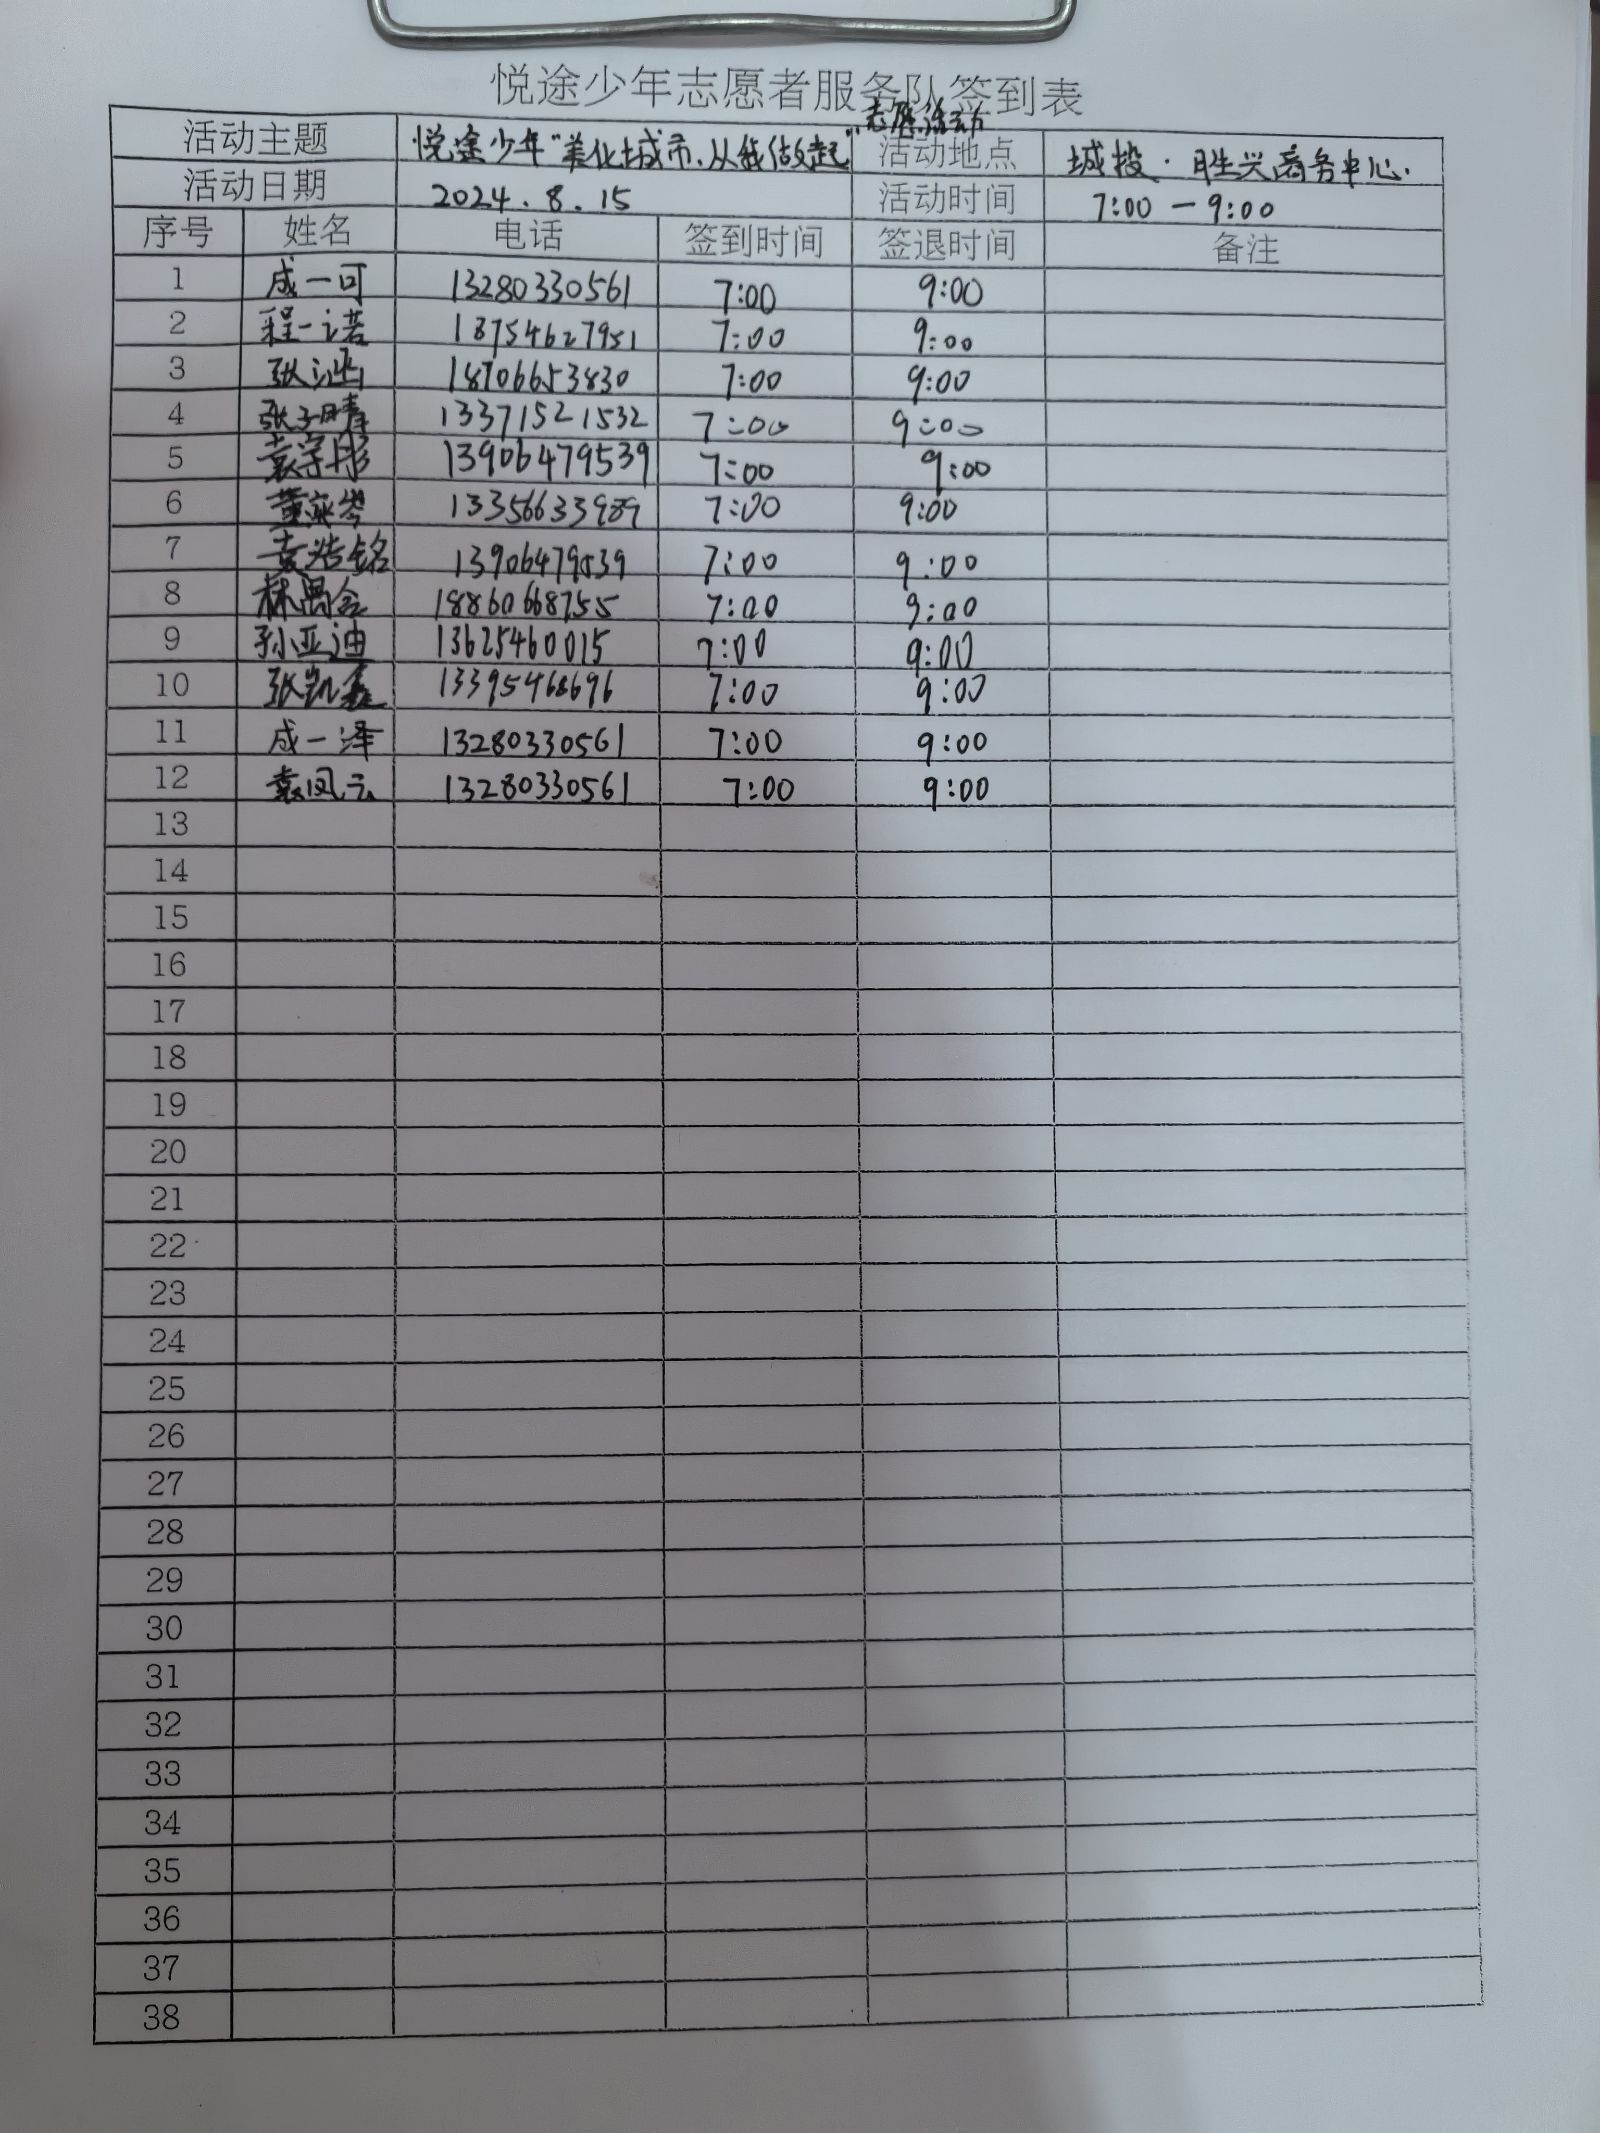 悦途少年志愿者服务队签到表
活动主题 悦途少年"美化城市、从我做起"志愿活动 活动地点 城投·胜兴商务中心.
活动日期 2024.8.15 活动时间 7:00-9:00
序号 姓名 电话 签到时间 签退时间 备注
1 成一可 13280330561 7:00 9:00
2 程一诺 18754627951 7:00 9:00
3 张涵 18706653830 7:00 9:00
4 张子晴 13371521532 7:00 9:00
5 袁宗彤 13906479539 7:00 9:00
6 董家岑 13356633989 7:00 9:00
7 袁浩铭 13906479539 7:00 9:00
8 林禹含 18860668755 7:00 9:00
9 孙亚迪 13625460015 7:00 9:00
10 张凯 13395468696 7:00 9:00
11 成一泽 13280330561 7:00 9:00
12 袁凤云 13280330561 7:00 9:00
13
14
15
16
17
18
19
20
21
22
23
24
25
26
27
28
29
30
31
32
33
34
35
36
37
38